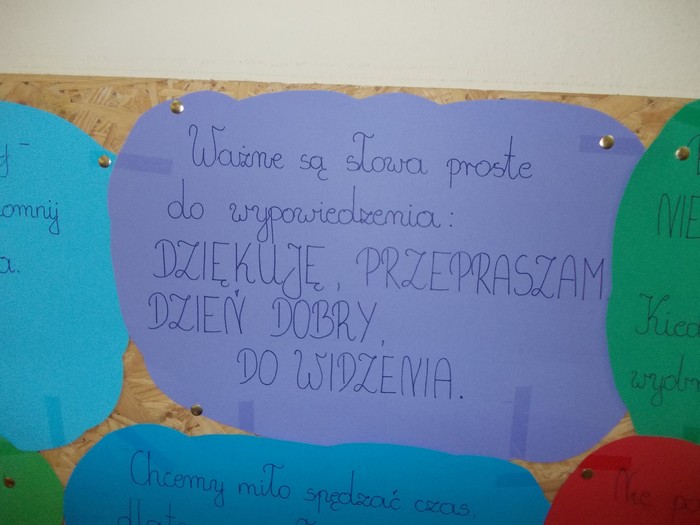 Ważne są słowa proste
do wypowiedzenia:
DZIĘKUJĘ, PRZEPRASZAM
DZIEŃ DOBRY,
DO WIDZENIA.
Chcemy miło spędzać czas.